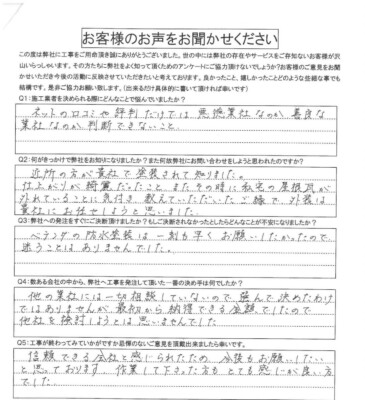 お客様のお声をお聞かせください
この度は弊社に工事をご用命頂き誠にありがとうございました。世の中には弊社の存在やサービスをご存知ないお客様が沢
山いらっしゃいます。その方たちに弊社をよく知って頂くためのアンケートにご協力頂けないでしょうか?お客様のご意見をお聞
かせいただき今後の活動に反映させていただきたいと考えております。良かったこと、嬉しかったことどのような些細な事でも
結構です。是非ご協力お願い致します。(出来るだけ具体的に書いて頂ければ幸いです)
Q1:施工業者を決められる際にどんなことで悩んでいましたか?
ネットの口コミや評判だけでは悪徳業社なのか、善良な
業社なのか判断できないこと。
Q2:何がきっかけで弊社をお知りになりましたか?また何故弊社にお問い合わせをしようと思われたのですか?
近所の方が貴社で塗装されて知りました。
仕上がりが綺麗だったこと、またその時に私宅の屋根瓦が
外れていることに気付き、教えていただいたご縁で、外装は
貴社にお任せしようと思いました。
Q3:弊社への発注をすぐにご決断頂けましたか?もしご決断されなかったとしたらどんなことが不安になりましたか?
ベランダの防水塗装は一刻も早くお願いしたかったので、
迷うことはありませんでした。
Q4:数ある会社の中から、弊社へ工事を発注して頂いた一番の決め手は何でしたか?
他の業社には一切相談していないので、強んで決めたわけ
ではありませんが、最初から納得できる金額でしたので
他社を検討しようとは思いませんでした
Q5:工事が終わってみていかがですか忌憚のないご意見を頂戴出来ましたら幸いです。
信頼できる会社と感じられたため、外装もお願いしたい
と思っております。作業して下さった方もとても感じが良い方
でした。